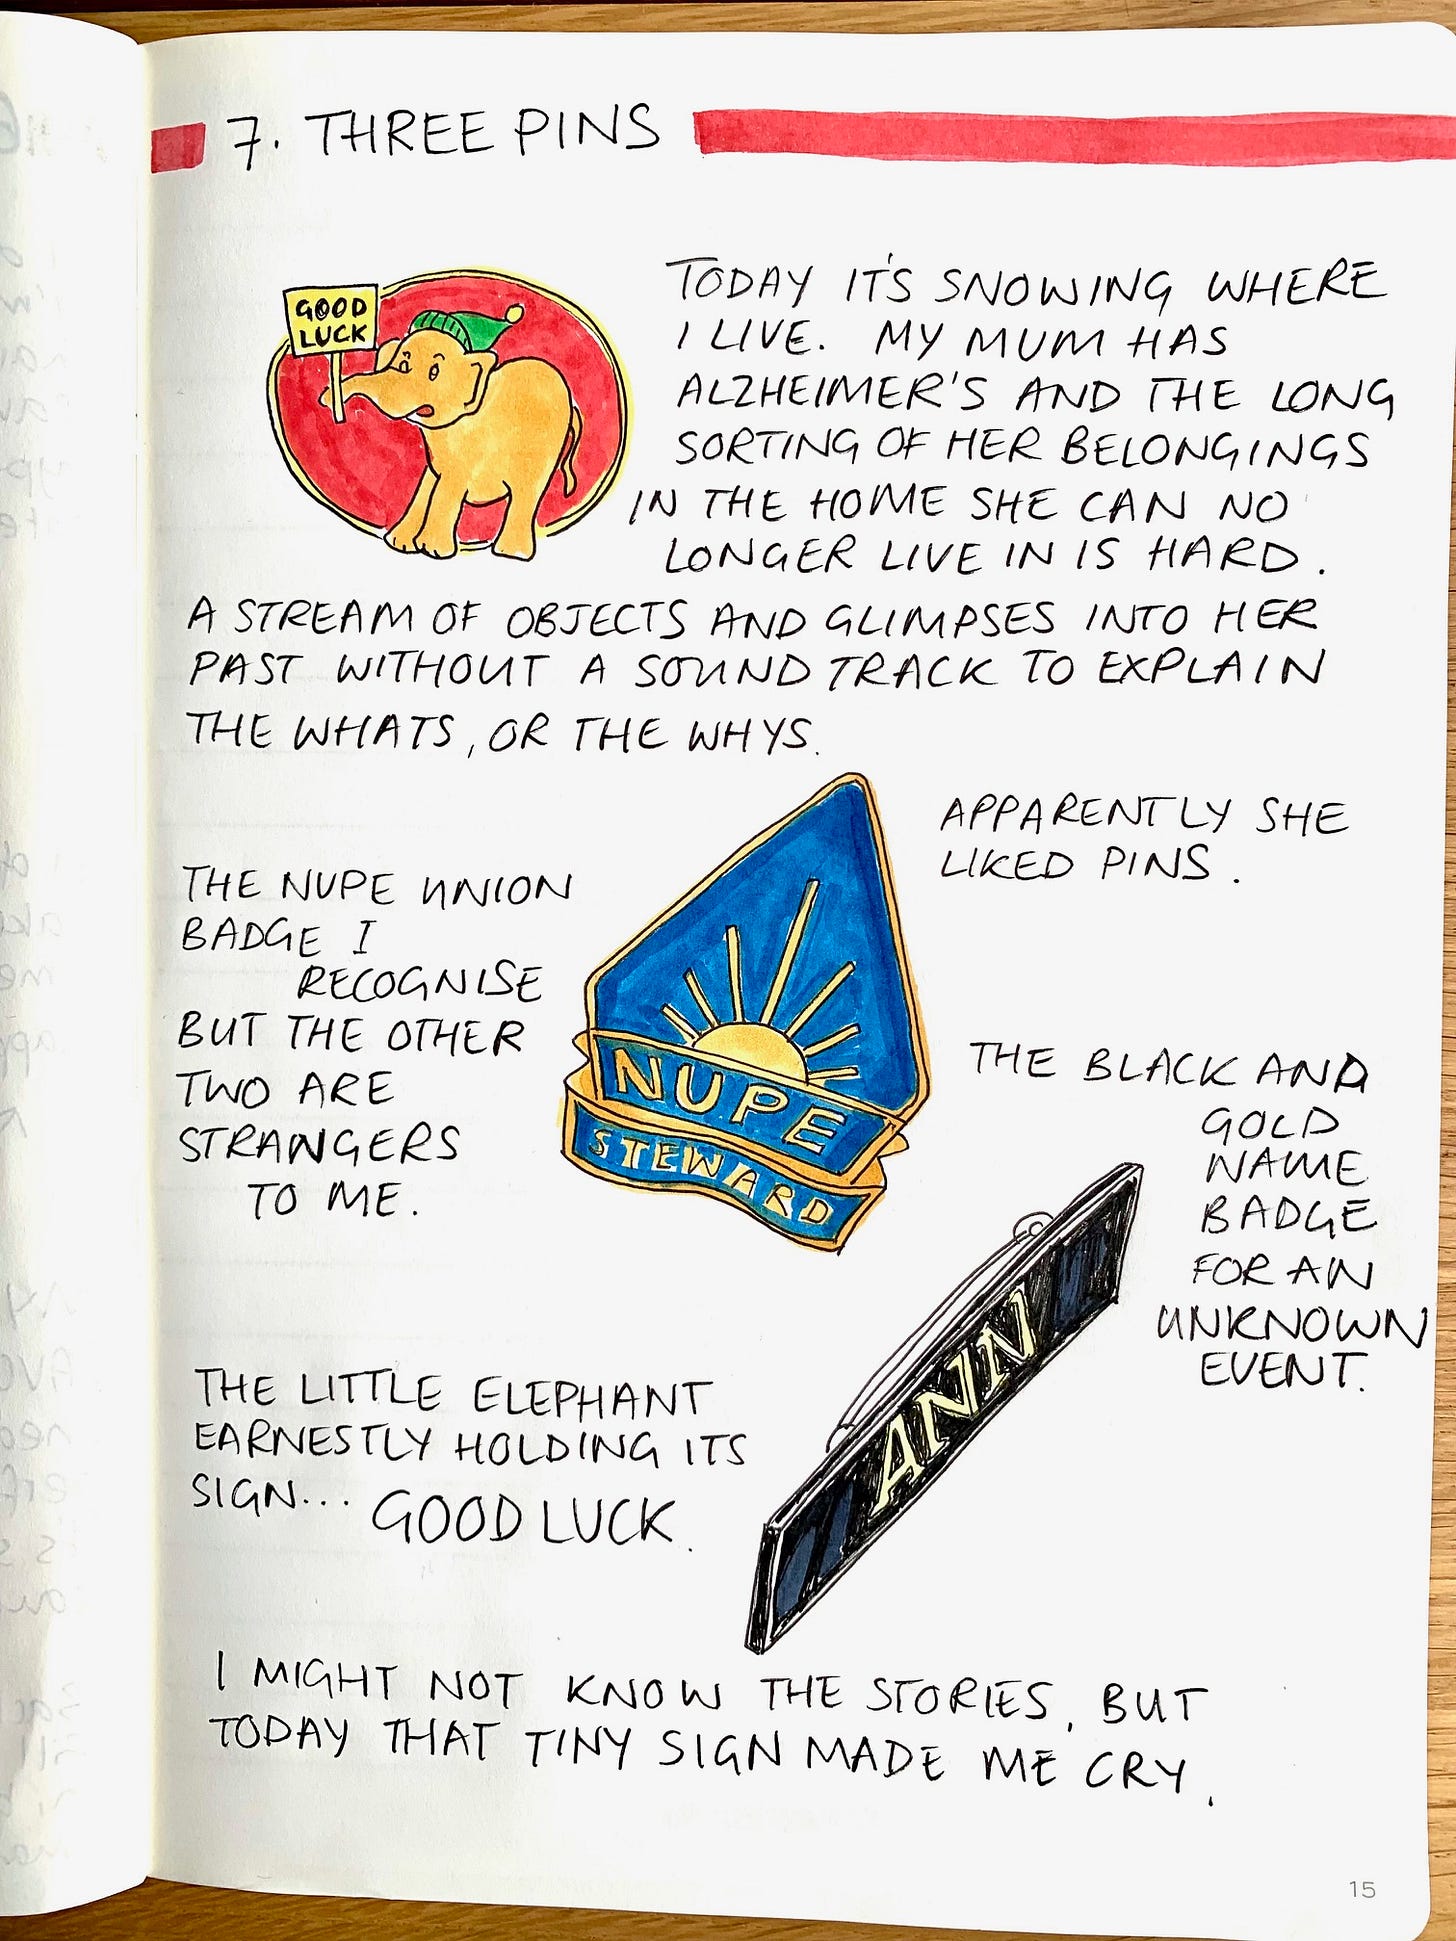 7. THREE PINS
GOOD
LUCK
TODAY IT'S SNOWING WHERE
I LIVE. MY MUM HAS
ALZHEIMER'S AND THE LONG
SORTING OF HER BELONGINGS
IN THE HOME SHE CAN NO
LONGER LIVE IN IS HARD.
A STREAM OF OBJECTS AND GLIMPSES INTO HER
PAST WITHOUT A SOUND TRACK TO EXPLAIN
THE WHATS, OR THE WHYS.
APPARENTLY SHE
LIKED PINS.
THE NUPE UNION
BADGE I
RECOGNISE
BUT THE OTHER
TWO ARE
STRANGERS
TO ME.
NUPE
STEWARD
THE BLACK AND
GOLD
NAME
BADGE
FOR AN
UNKNOWN
EVENT.
ANN
THE LITTLE ELEPHANT
EARNESTLY HOLDING ITS
SIGN... GOOD LUCK.
I MIGHT NOT KNOW THE STORIES, BUT
TODAY THAT TINY SIGN MADE ME CRY.
15